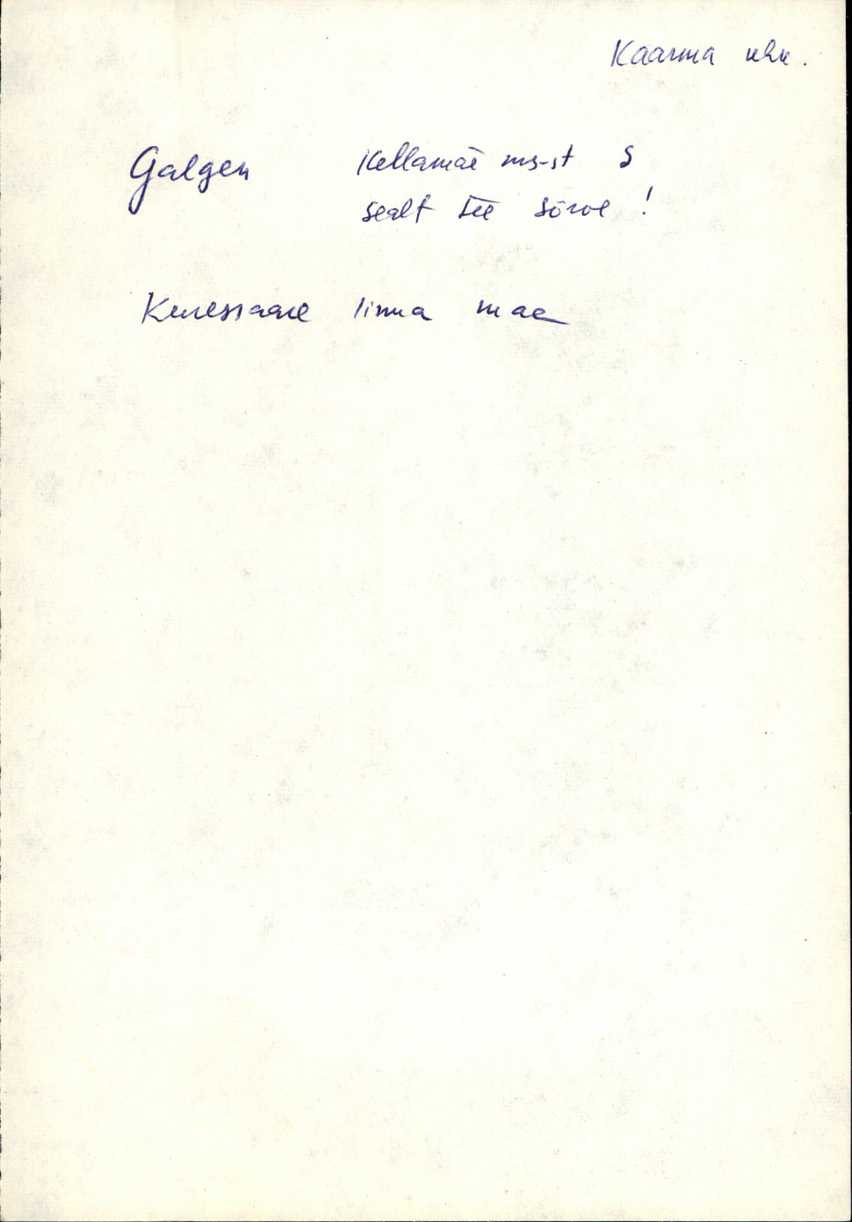 Kaarma khk.
Galgen Kellamäe ms-st S
sealt tee Sõrve !
Kuressaare linna mae